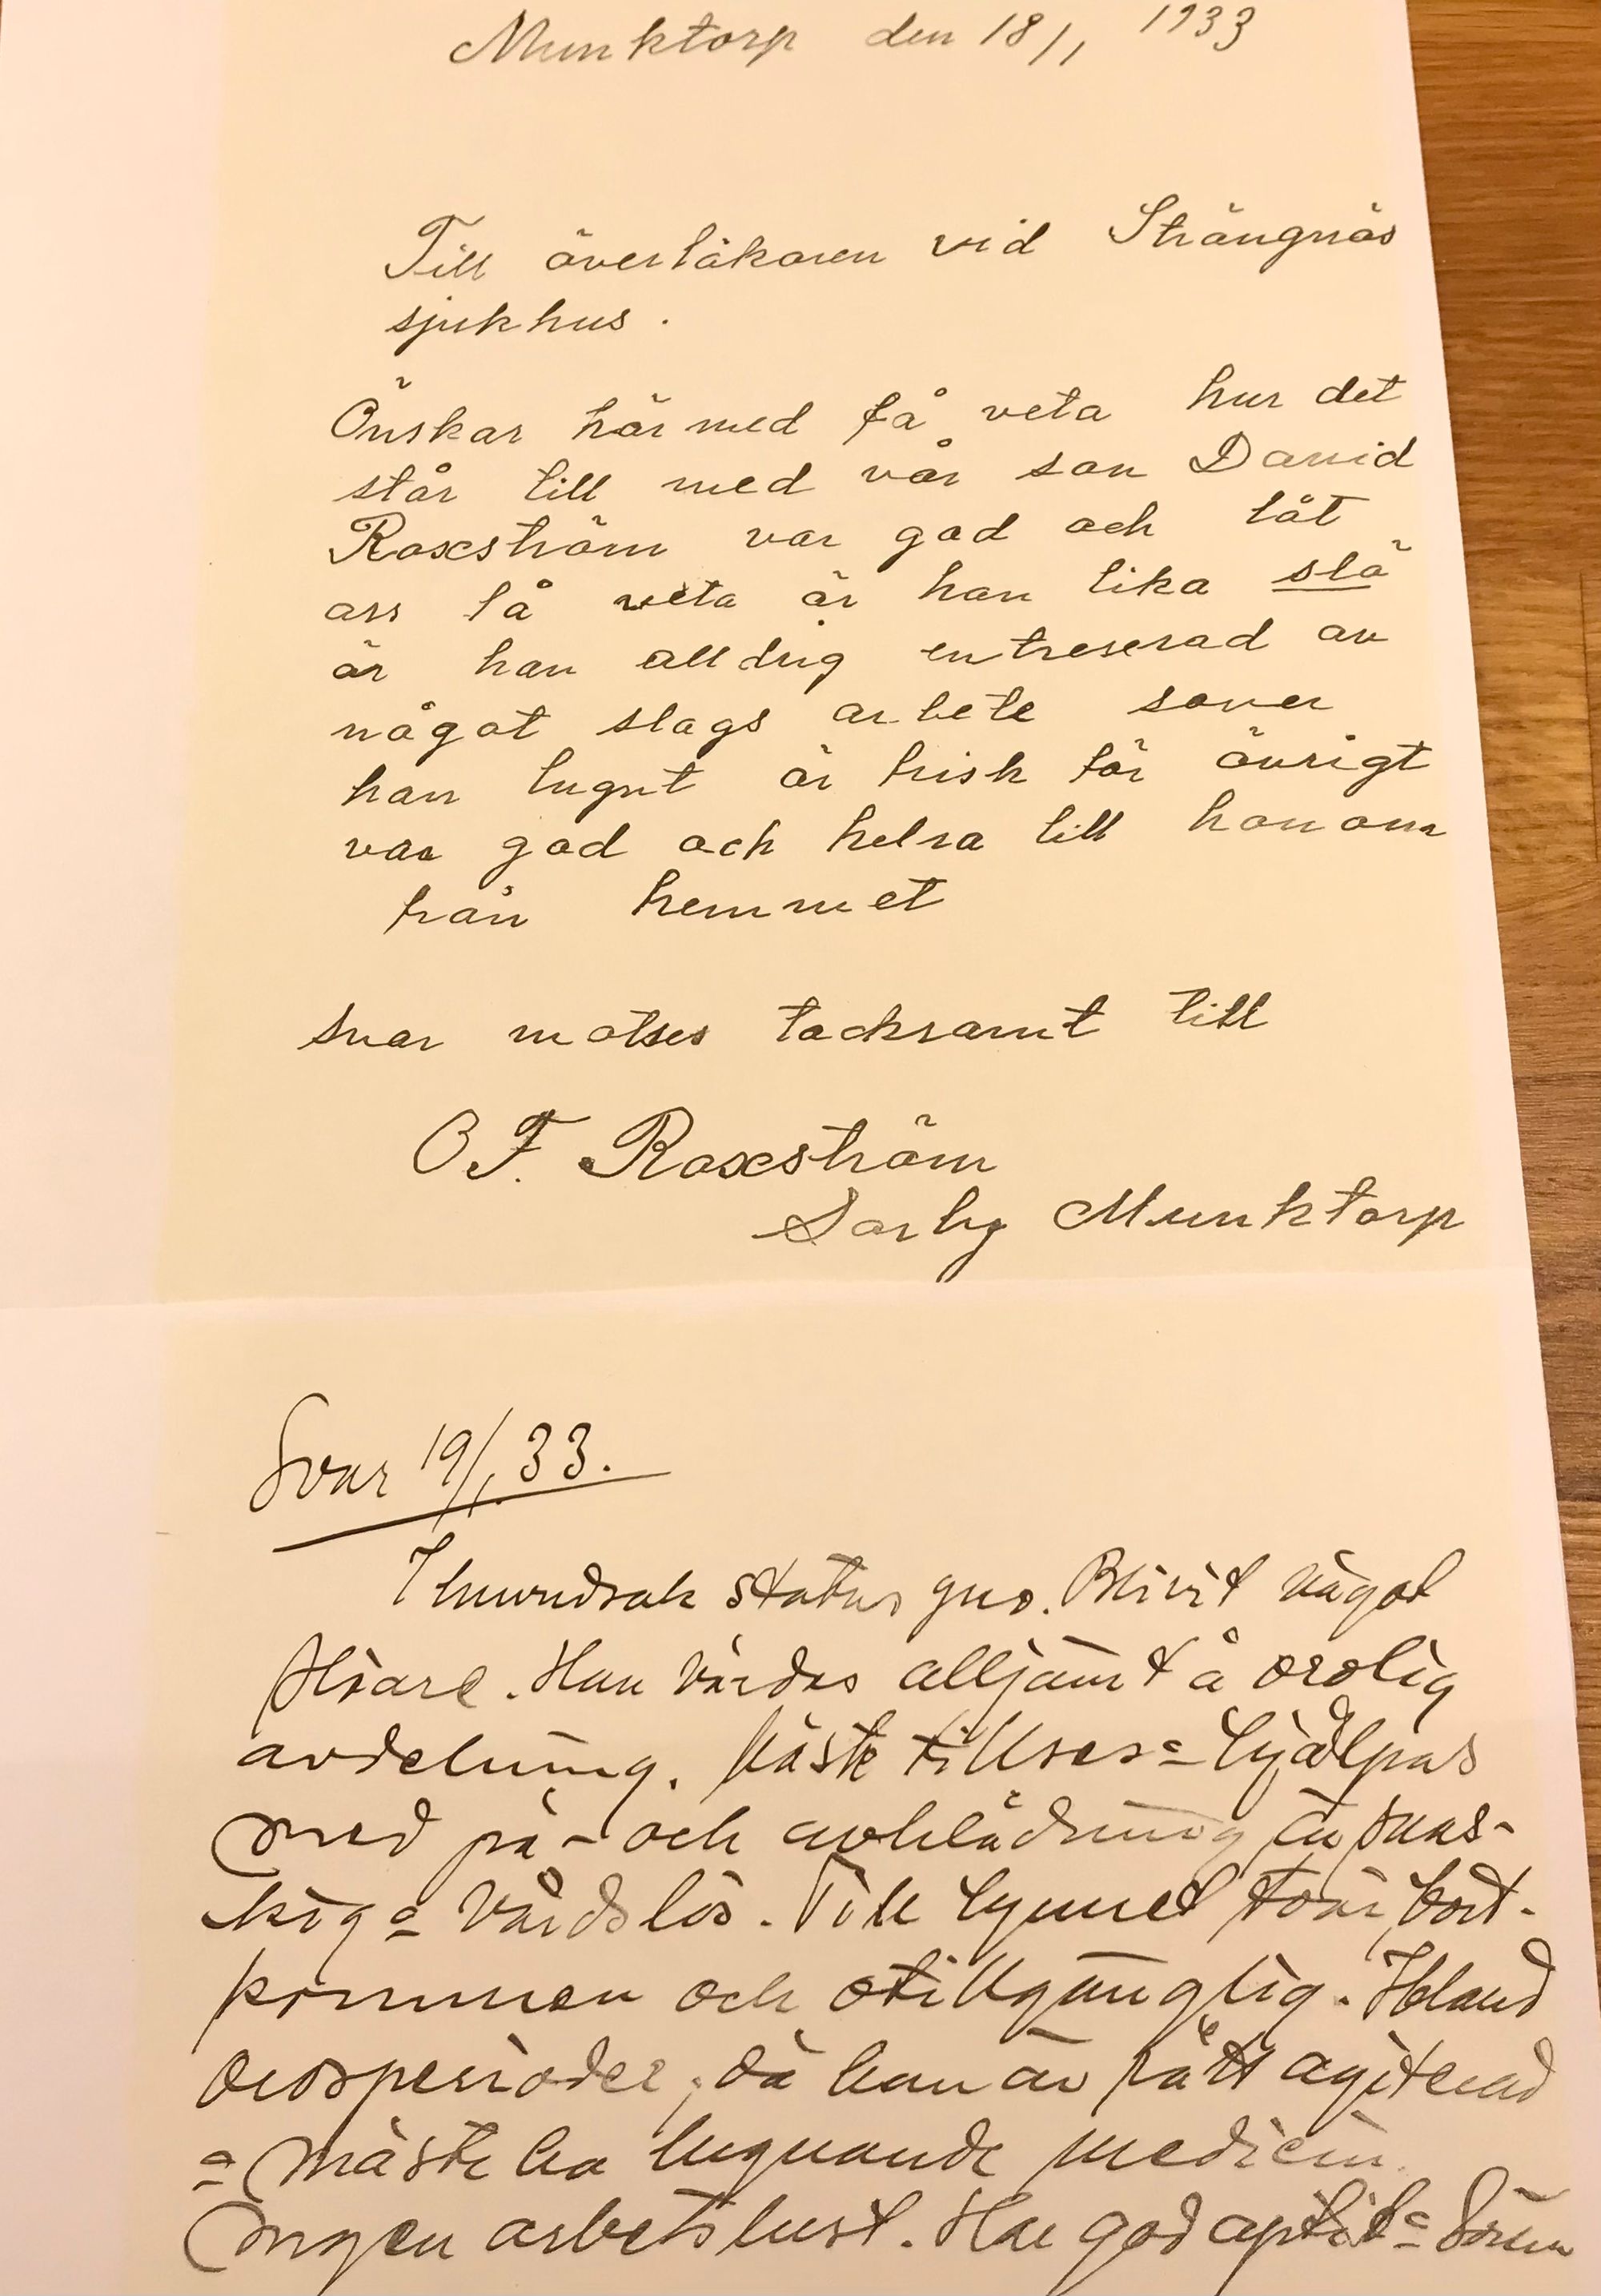 Munktorp den 18/1 1933
Till överläkaren vid Strängnäs
sjukhus.
Önskar härmed få veta hur det
står till med vår son David
Roxström var god och låt
oss få veta är han lika slö
är han alldrig entreserad av
något slags arbete sover
han lugnt är frisk för övrigt
var god och helsa till honom
från hemmet
svar motses tacksamt till
O F. Roxström
Sorby Munktorp
Svar 19/1 33.
I huvudsak status quo. Blivit något
slöare. Han vårdas alltjämt å orolig
avdelning. Måste tillses = hjälpas
med på- och avklädning, är snas-
kig = vårdslös. Till lynnet tvär, bort-
kommen och otillgänglig. Ibland
orosperioder, då han är rätt agiterad
= måste ha lugnande medicin.
Ingen arbetslust. Har god aptit = sömn